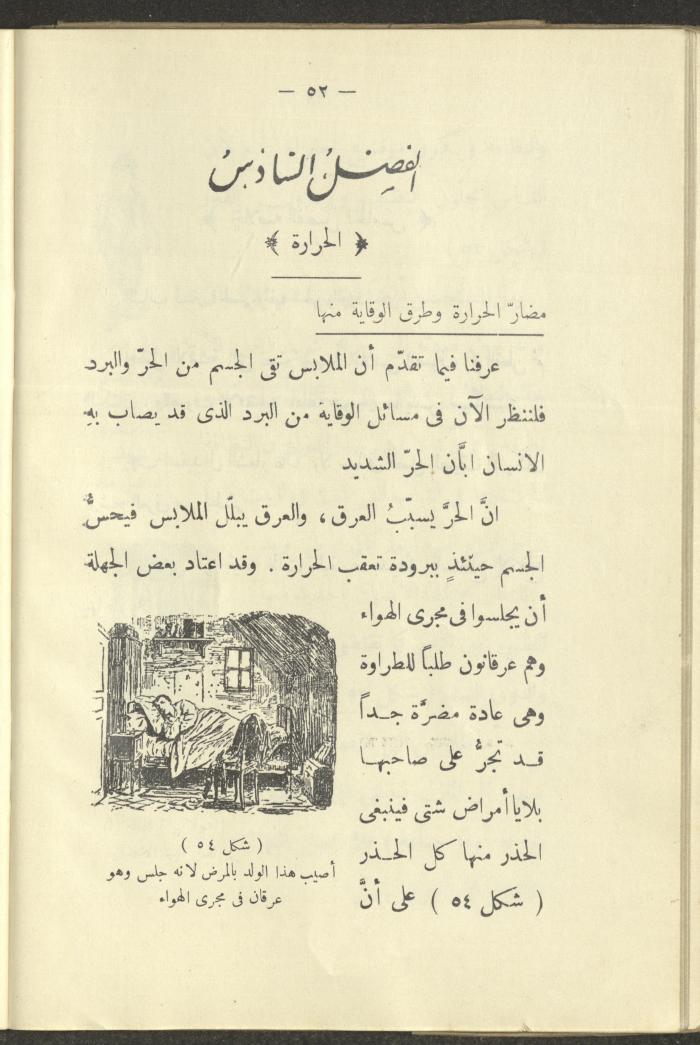 — ٥٢ —
الفصل السادس
﴿ الحرارة ﴾
مضارّ الحرارة وطرق الوقاية منها
عرفنا فيما تقدّم أن الملابس تقى الجسم من الحرّ والبرد
فلننظر الآن فى مسائل الوقاية من البرد الذى قد يصاب بهِ
الانسان ابَّان الحرّ الشديد
انَّ الحرَّ يسبّبُ العرق ، والعرق يبلّل الملابس فيحسُّ
الجسم حينئذٍ ببرودة تعقب الحرارة . وقد اعتاد بعض الجهلة
أن يجلسوا فى مجرى الهواء
وهم عرقانون طلباً للطراوة
وهى عادة مضرَّة جـداً
قـد تجرُّ على صاحبهـا
بلايا أمراض شتى فينبغى
الحذر منها كل الحـذر
( شكل ٥٤ ) على أنَّ
( شكل ٥٤ )
أصيب هذا الولد بالمرض لانه جلس وهو
عرقان فى مجرى الهواء